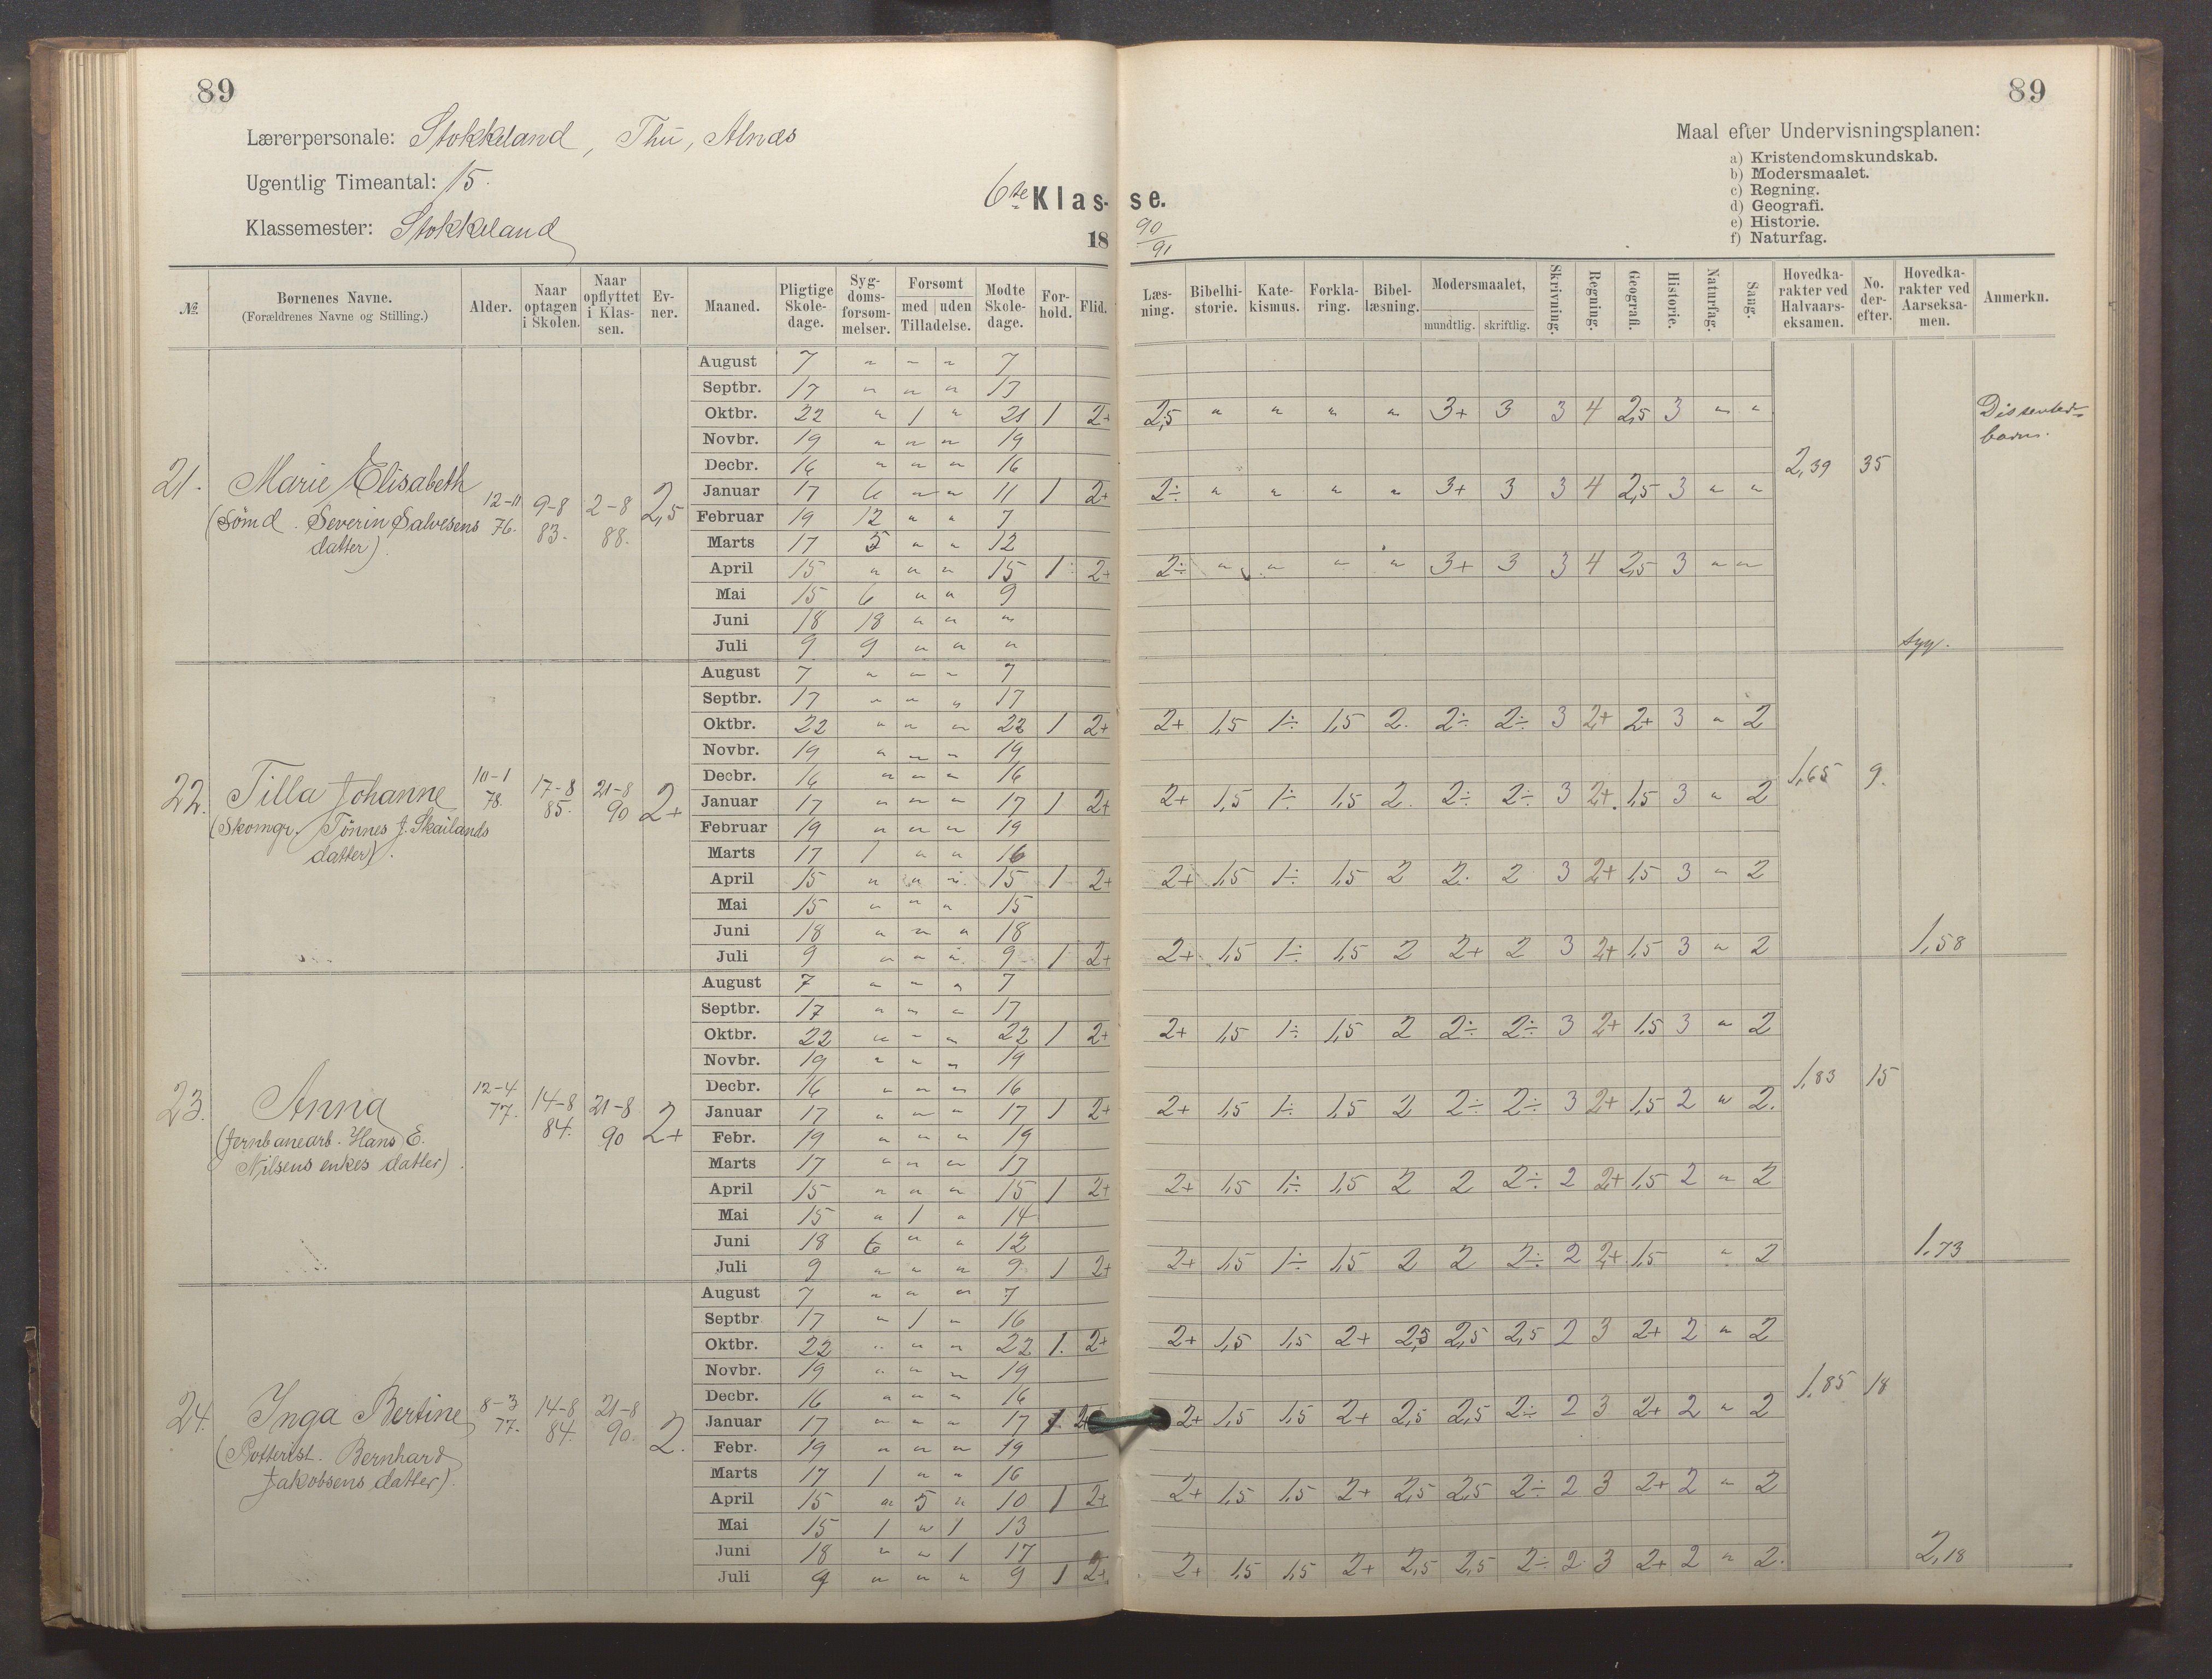 89
89
Lærerpersonale: Stokkeland, Thu, Alnæs
Ugentlig Timeantal: 15.
Klassemester: Stokkeland
6te Klasse.
18 90/91
Maal efter Undervisningsplanen:
a) Kristendomskundskab.
b) Modersmaalet.
c) Regning.
d) Geografi.
e) Historie.
f) Naturfag.
№ | Børnenes Navne. (Forældrenes Navne og Stilling.) | Alder. | Naar optagen i Skolen. | Naar opflyttet i Klassen. | Evner. | Maaned. | Pligtige Skoledage. | Sygdomsforsømmelser. | Forsømt med uden Tilladelse. | Mødte Skoledage. | Forhold. | Flid. | Læsning. | Bibelhistorie. | Katekismus. | Forklaring. | Bibellæsning. | Modersmaalet, mundtlig. skriftlig. | Skrivning. | Regning. | Geografi. | Historie. | Naturfag. | Sang. | Hovedkarakter ved Halvaarseksamen. | No. derefter. | Hovedkarakter ved Aarseksamen. | Anmerkn.
21. Marie Elisabeth
(Sømd. Severin Salvesens
datter).
12-11 76. 9-8 83. 2-8 88. 2,5
August 7 " " " 7
Septbr. 17 " " " 17
Oktbr. 22 " 1 " 21 1 2+ 2,5 " " " " 3+ 3 3 4 2,5 3 " "
Dissenterbarn.
Novbr. 19 " " " 19
Decbr. 16 " " " 16
2,39 35
Januar 17 6 " " 11 1 2+ 2÷ " " " " 3+ 3 3 4 2,5 3 " "
Februar 19 12 " " 7
Marts 17 5 " " 12
April 15 " " " 15 1 2+ 2÷ " " " " 3+ 3 3 4 2,5 3 " "
Mai 15 6 " " 9
Juni 18 18 " " "
Juli 9 9 " " "
syg.
22. Tilla Johanne
(Skomgr. Tönnes J. Skailands
datter).
10-1 78. 17-8 85. 21-8 90 2+
August 7 " " " 7
Septbr. 17 " " " 17
Oktbr. 22 " " " 22 1 2+ 2+ 1,5 1÷ 1,5 2. 2÷ 2÷ 3 2+ 2+ 3 " 2
Novbr. 19 " " " 19
Decbr. 16 " " " 16
1,65 9.
Januar 17 " " " 17 1 2+ 2+ 1,5 1÷ 1,5 2. 2÷ 2÷ 3 2+. 1,5 3 " 2
Februar 19 " " " 19
Marts 17 1 " " 16
April 15 " " " 15 1 2+ 2+ 1,5 1÷ 1,5 2 2. 2 3 2+ 1,5 3 " 2
Mai 15 " " " 15
Juni 18 " " " 18
Juli 9 " " " 9 1 2+ 2+ 1,5 1÷ 1,5 2 2+ 2 3 2+ 1,5 3 " 2
1,58
23. Anna
(Jernbanearb. Hans E.
Nilsens enkes datter).
12-4 77. 14-8 84. 21-8 90 2+
August 7 " " " 7
Septbr. 17 " " " 17
Oktbr. 22 " " " 22 1 2+ 2+ 1,5 1÷ 1,5 2 2÷ 2÷ 3 2+ 1,5 3 " 2
Novbr. 19 " " " 19
Decbr. 16 " " " 16
1,83 15
Januar 17 " " " 17 1 2+ 2+ 1,5 1÷ 1,5 2 2÷ 2÷ 3 2+ 1,5 2 " 2.
Febr. 19 " " " 19
Marts 17 " " " 17
April 15 " " " 15 1 2+ 2+ 1,5 1÷ 1,5 2 2 2÷ 2 2+ 1,5 2 " 2
Mai 15 " 1 " 14
Juni 18 6 " " 12
Juli 9 " " " 9 1 2+ 2+ 1,5 1÷ 1,5 2 2 2÷ 2 2+ 1,5 " 2
1,73
24. Inga Bertine
(Potterist. Bernhard
Jakobsens datter).
8-3 77. 14-8 84. 21-8 90. 2.
August 7 " " " 7
Septbr 17 " 1 " 16
Oktbr. 22 " " " 22 1. 2+ 2+ 1,5 1,5 2+ 2,5 2,5 2,5 2 3 2+ 2 " 2
Novbr. 19 " " " 19
Decbr. 16 " " " 16
1,85 18
Januar 17 " " " 17 1. 2+ 2+ 1,5 1,5 2+ 2,5 2,5 2÷ 2 3 2+ 2 " 2
Febr. 19 " " " 19
Marts 17 1 " " 16
April 15 " 5 " 10 1 2+ 2+ 1,5 1,5 2+ 2,5 2,5 2÷ 2 3 2+ 2 " 2
Mai 15 1 " 1 13
Juni 18 " " 1 17
Juli 9 " " " 9 1 2+ 2+ 1,5 1,5 2+ 2,5 2,5 2÷ 2 3 2+ 2 " 2.
2,18